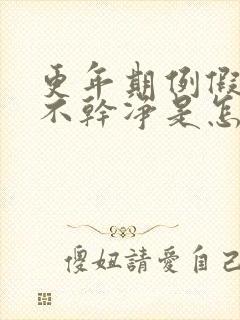 更年期例假
不幹净是怎
傻妞請愛自己